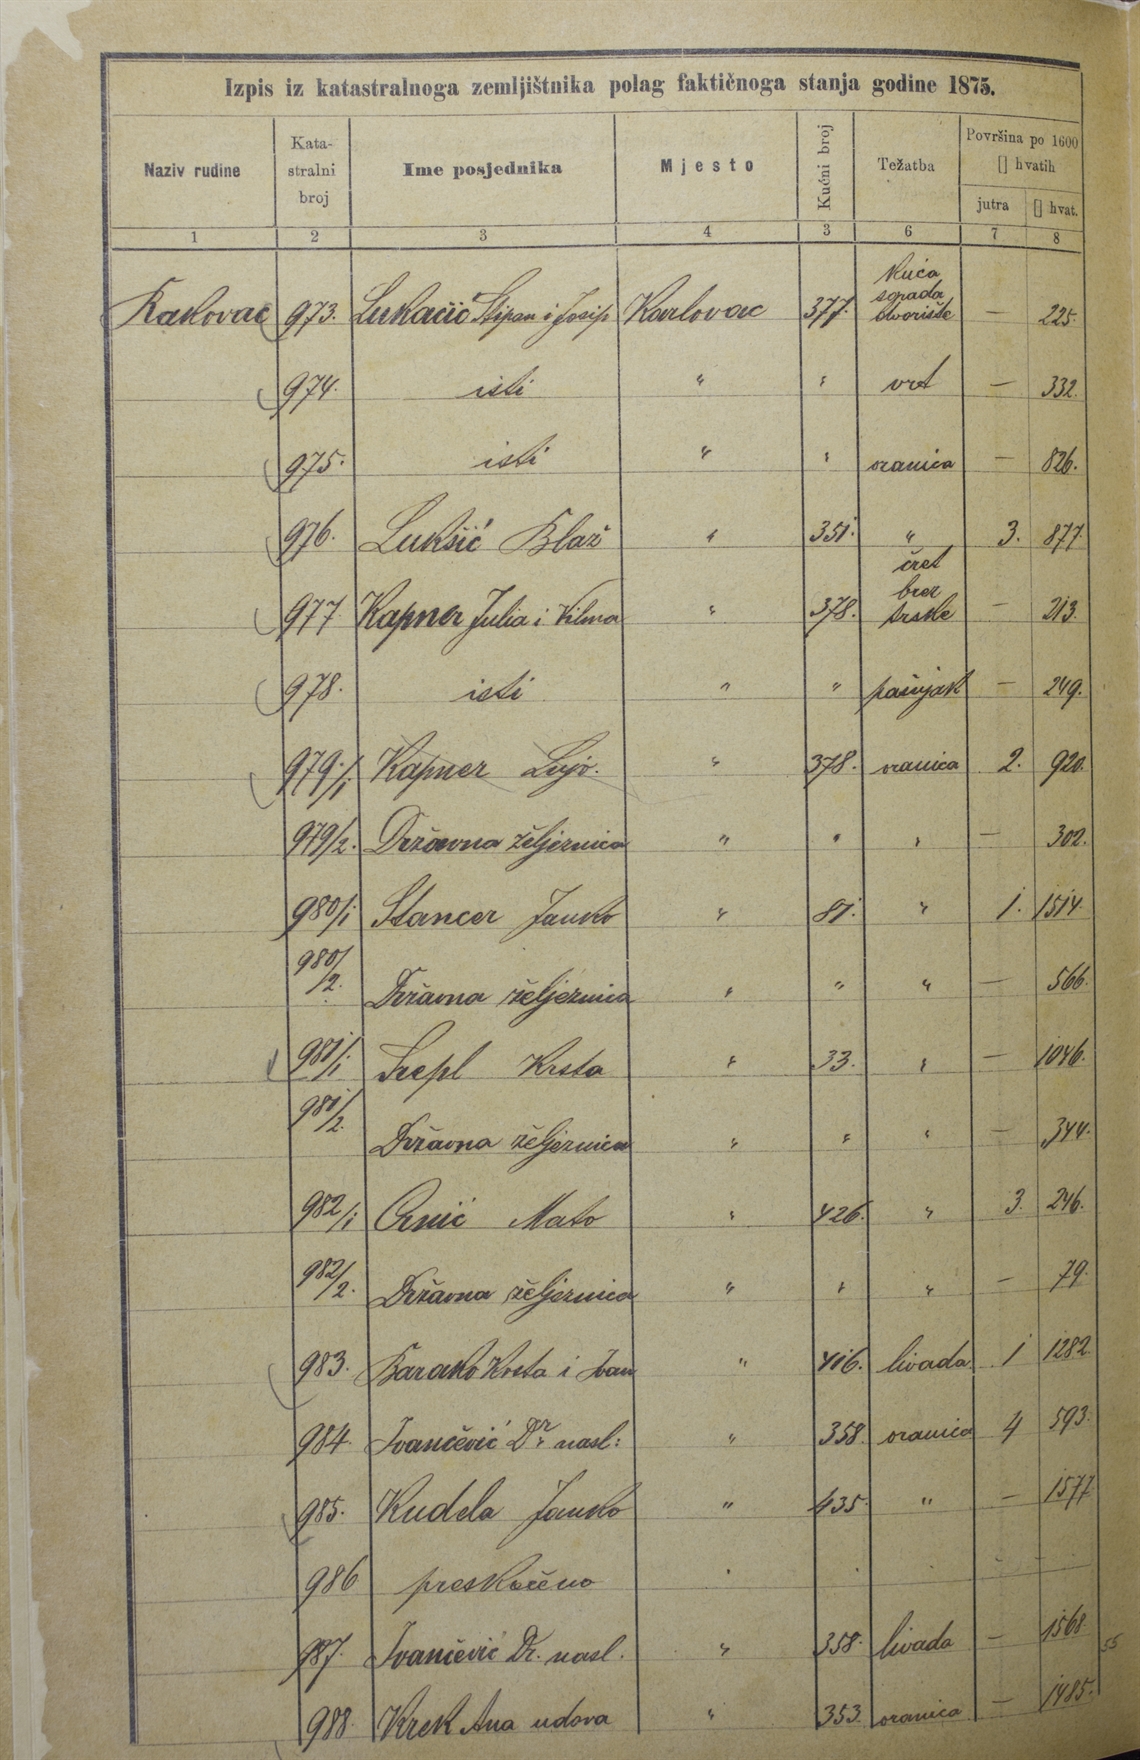 Izpis iz katastralnoga zemljištnika polag faktičnoga stanja godine 1875.
Naziv rudine Kata-stralni broj Ime posjednika Mjesto Kućni broj Težatba Površina po 1600 ▯ hvatih
jutra ▯ hvat.
1 2 3 4 3 6 7 8
Rakovac 973. Lukačić Stipan i Josip Karlovac 377. kuća sgrada dvorište — 225.
974. isti " " vrt — 332.
975. isti " " oranica — 826.
976. Lukšić Blaž " 351. " 3. 877.
977 Kapner Julia i Vilma " 378. čret brez trske — 213.
978. isti " " pašnjak — 249.
979./1 Kapner Lujo. " 378. oranica 2. 920.
979/2. Državna željeznica " " " — 302.
980/1 Stancer Janko " 81. " 1. 1514.
980/2. Državna željeznica " " " — 566.
981/1 Krsta " 33. " — 1046.
981/2. Državna željeznica " " " — 344.
982/1 Crnić Mato " 426. " 3. 246.
982/2. Državna željeznica " " " — 79.
983. Barako Krsta i Ivan " 416. livada 1 1282.
984. Ivančević Dr. nasl: " 358. oranica 4 593.
985. Kudela Janko " 435. " — 1577.
986 preskočeno
987. Ivančević Dr. nasl. " 358. livada — 1568.
55
988. Krek Ana udova " 353. oranica — 1485.